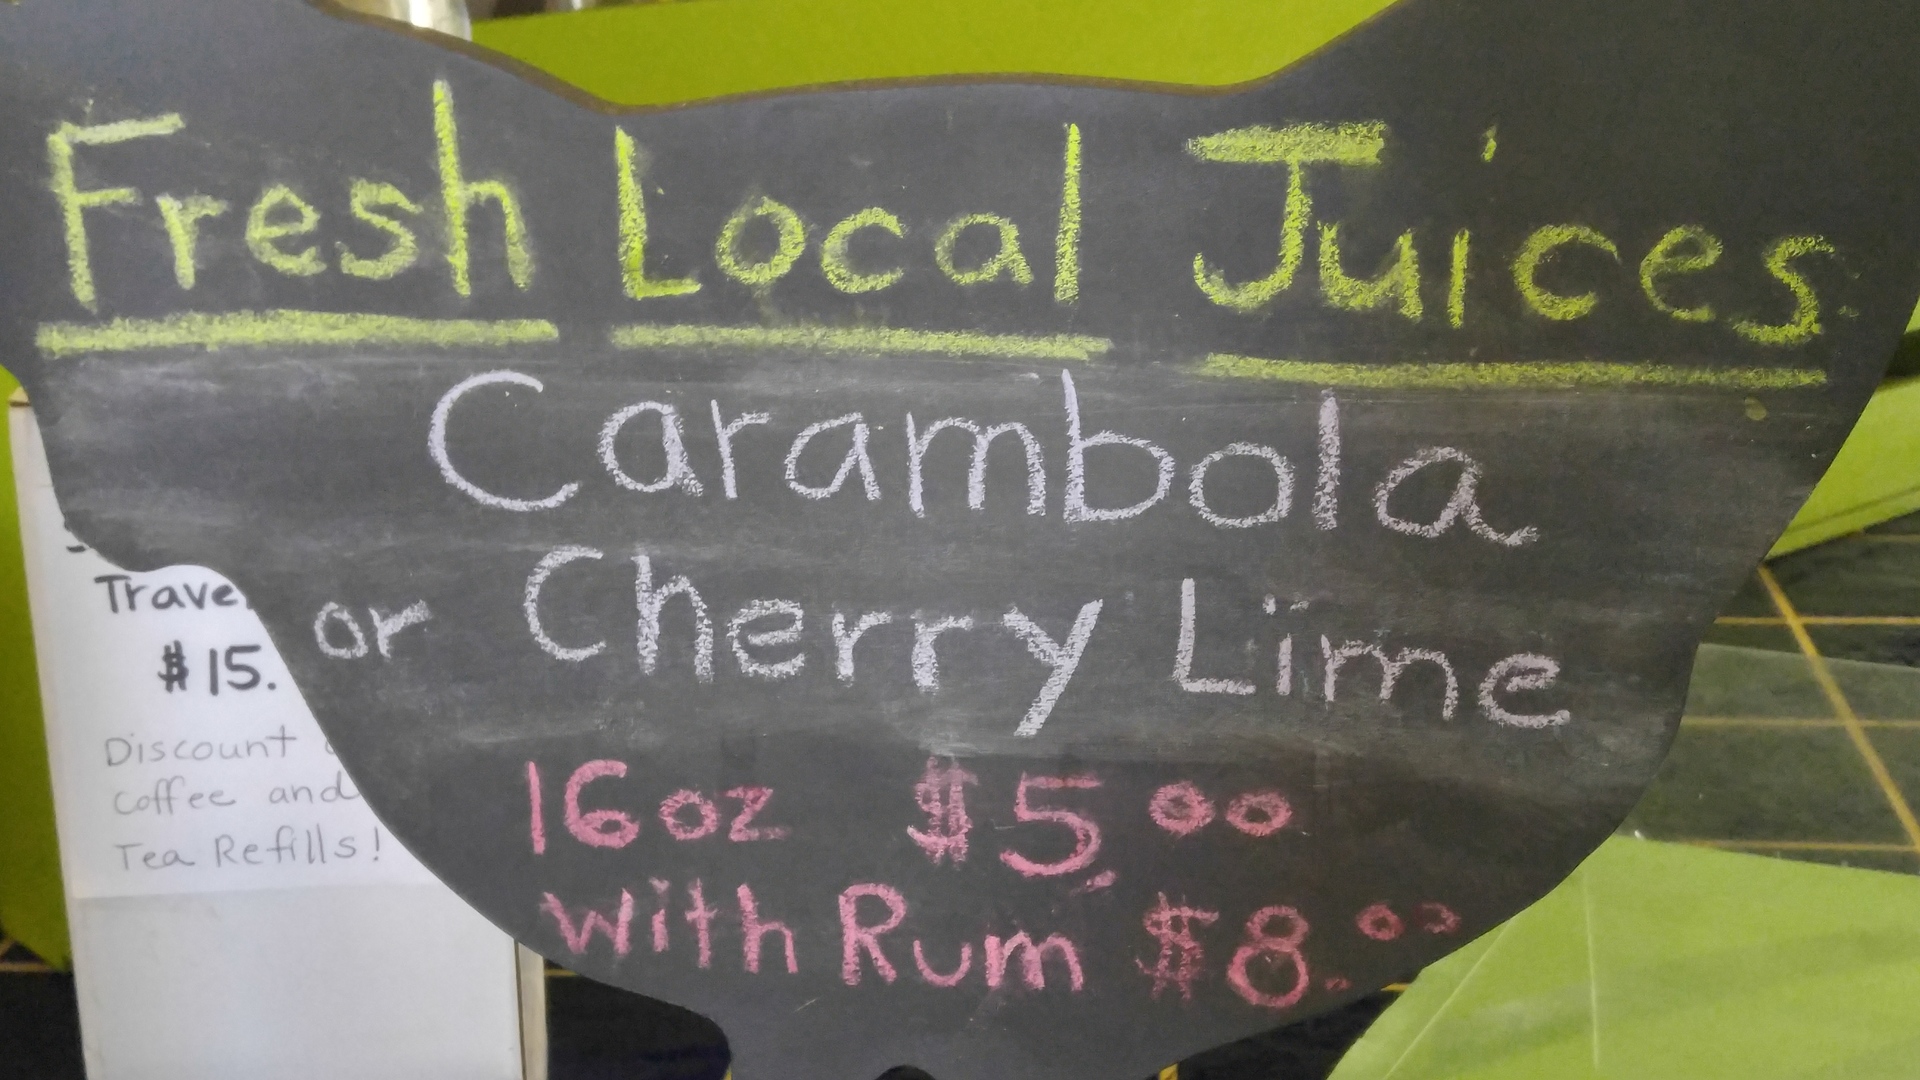 Fresh Local Juices
Carambola
or Cherry Lime
16oz $5.00
with Rum $8.00
$15.
Discount
Coffee and
Tea Refills!